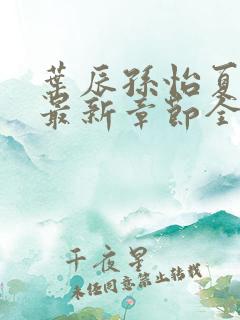 叶辰孙怡夏
最新章节全
千夜星
未经同意禁止转载